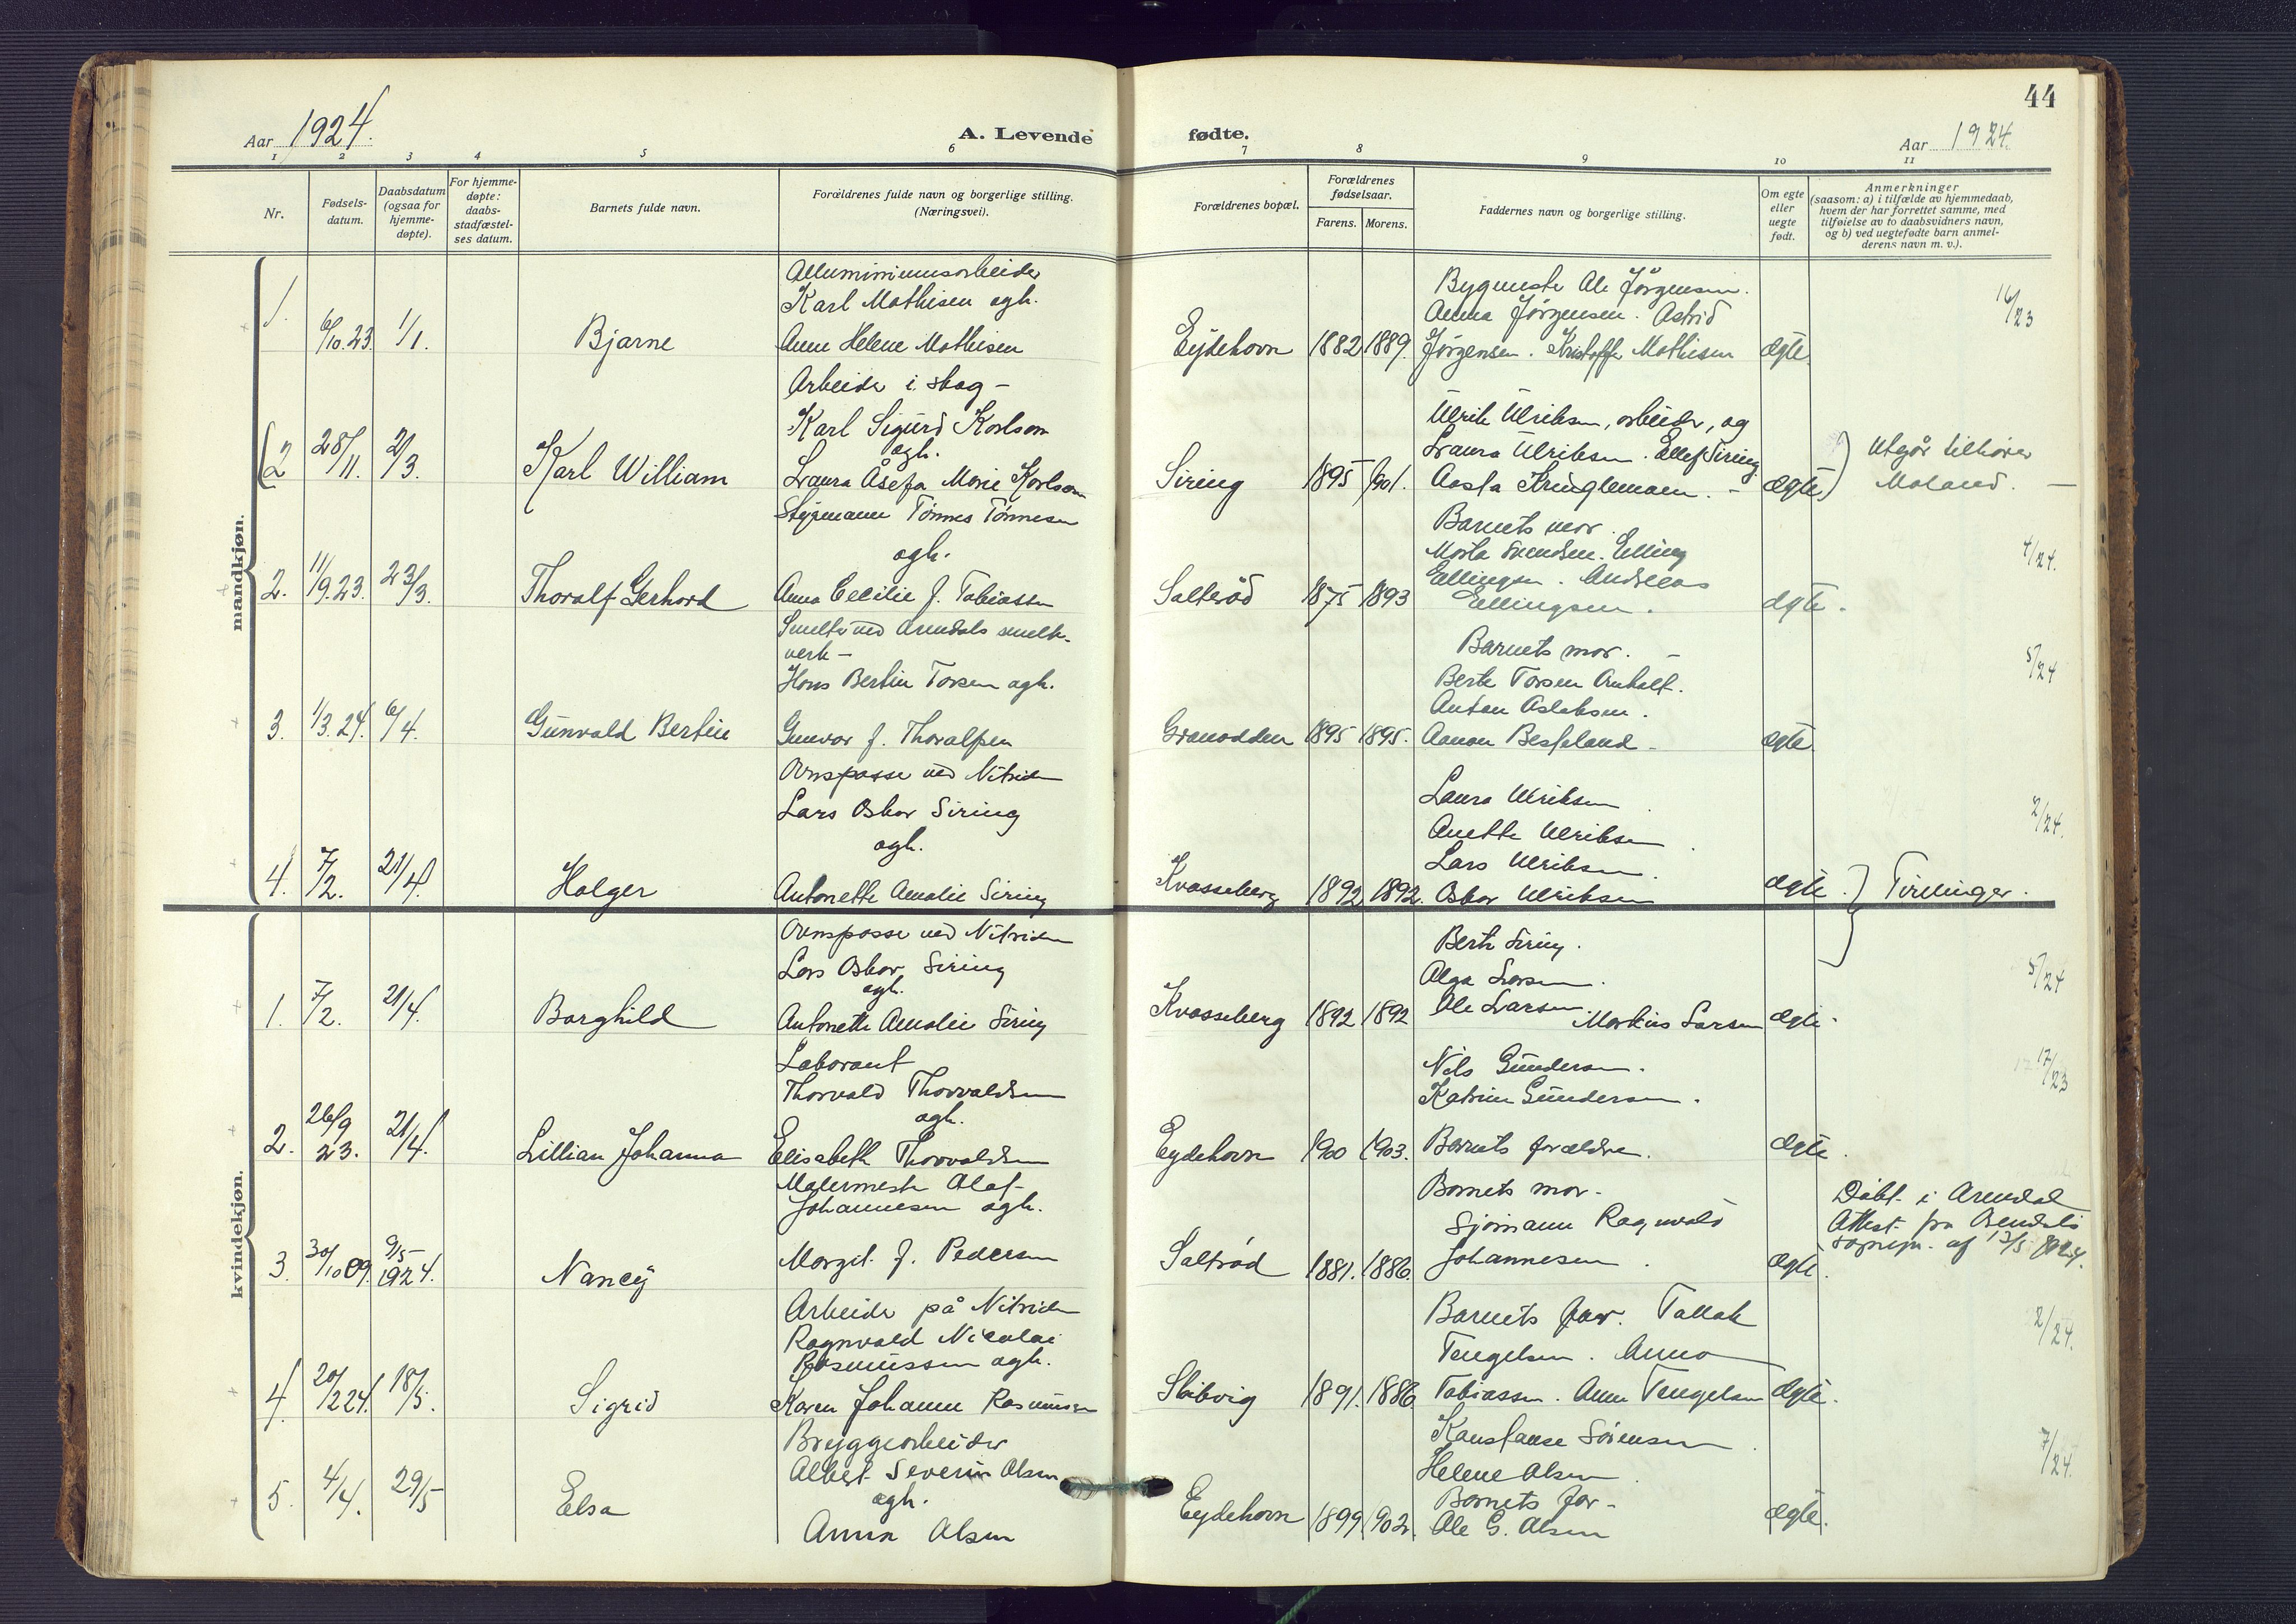 44
Aar 1924.
A. Levende fødte.
Aar 1924.
1 2 3 4 5 6 7 8 9 10 11
Nr.
Fødsels-
datum.
Daabsdatum
(ogsaa for
hjemme-
døpte).
For hjemme-
døpte:
daabs-
stadfæstel-
ses datum.
Barnets fulde navn.
Forældrenes fulde navn og borgerlige stilling.
(Næringsvei).
Forældrenes bopæl.
Forældrenes
fødselsaar.
Farens. Morens.
Faddernes navn og borgerlige stilling.
Om egte
eller
uegte
født.
Anmerkninger
(saasom: a) i tilfælde av hjemmedaab,
hvem der har forrettet samme, med
tilføielse av to daabsvidners navn,
og b) ved uegtefødte barn anmel-
derens navn m. v.).
mandkjøn.
1. 6/10.23. 1/1. Bjarne
Alluminiumsarbeider
Karl Mathisen ogh.
Anne Helene Mathisen
Eydehavn 1882 1889.
Bygmester Ole Jörgensen.
Anna Jörgensen. Astrid
Jörgensen. Kristoffer Mathisen
Ægte.
16/23
2 28/11. 2/3. Karl William
Arbeider i skog –
Karl Sigurd Karlson
ogh.
Laura Åsefa Marie Karlson
Siring 1895 1901.
Ulrik Ulriksen, arbeider, og
Laura Ulriksen. Ellef Siring
Aasta Kringlemoen. –
Ægte
Utgår tilhører
Moland. –
2. 11/9.23. 23/3. Thoralf Gerhard
Styrmann Tönnes Tönnesen
ogh.
Anna Cecilie f. Tobiassen
Salteröd 1875 1893
Barnets mor.
Marta Svendsen. Elling
Ellingsen. Andreas
Ellingsen.
Ægte.
4/24.
3. 1/3.24. 6/4. Gunvald Bertin
Smelter ved Arendals smelte-
verk –
Hans Bertin Torsen ogh.
Gunvor f. Thoralfsen
Granodden 1895 1895.
Barnets mor. –
Berte Torsen Anholt.
Anton Aslaksen.
Aanon Besteland –
Ægte.
5/24
4. 7/2. 21/4. Holger
Ovnspasser ved Nitriden
Lars Oskar Siring
ogh.
Antonette Amalie Siring
Kvasseberg 1892 1892.
Laura Ulriksen
Anette Ulriksen.
Lars Ulriksen.
Oskar Ulriksen
Ægte.
Tvillinger.
2/24.
kvindekjøn.
1. 7/2. 21/4. Borghild
Ovnspasser ved Nitriden
Lars Oskar Siring
ogh.
Antonette Amalie Siring
Kvasseberg 1892 1892
Berte Siring.
Olga Larsen.
Ole Larsen. Markus Larsen
Ægte.
5/24
2. 26/9 23. 21/4. Lillian Johanna
Laborant
Thorvald Thorvaldsen
ogh.
Elisabeth Thorvaldsen
Eydehavn 1900 1903.
Nils Gundersen.
Katrine Gundersen.
Barnets forældre.
Ægte.
17/23
3. 30/10 09. 9/5 1924. Nancy
Malermester Olaf
Johannesen ogh.
Margit f. Pedersen
Saltröd 1881. 1886.
Barnets mor.
Sjømann Ragnvald
Johannesen.
Ægte.
Döbt i Arendal
Attest fra Arendals
sognepr. af 13/5 1924.
4. 20/2 24. 18/5. Sigrid
Arbeider på Nitriden
Ragnvald Nicolai
Rasmussen ogh.
Karen Johanne Rasmussen
Skibvig 1891. 1886.
Barnets far. Tallak
Tengelsen. Anna
Tobiassen. Anne Tengelsen
Ægte.
2/24.
5. 4/4. 29/5 Elsa
Bryggearbeider
Albert Severin Olsen
ogh.
Anna Olsen
Eydehavn 1899 1902.
Konstanse Sörensen.
Helene Olsen.
Barnets far –
Ole G. Olsen
Ægte.
7/24.